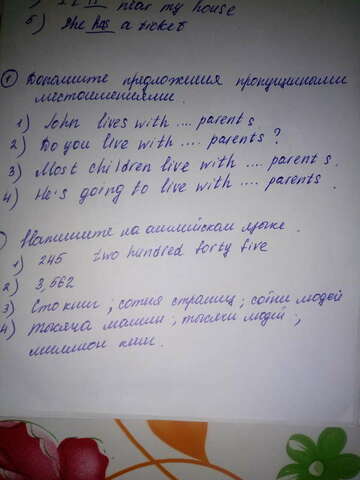 near my house
5) She has a ticket
1 Дополните предложения пропущенными
местоимениями.
1) John lives with .... parents
2) Do you live with .... parents?
3) Most children live with .... parents.
4) He's going to live with .... parents.
Напишите на английском языке.
1) 245 two hundred forty five
2) 3,562
3) Сто книг; сотня страниц; сотни людей
4) тысяча машин; тысячи людей;
миллион книг.